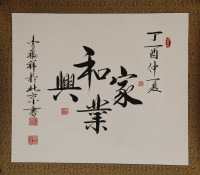 丁酉仲夏
家和業興
李福祥於北京書